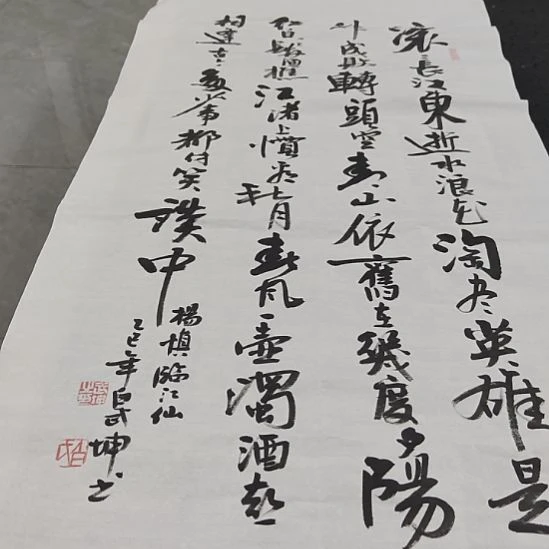 滚滚長江東逝水浪花淘尽英雄是
非成敗轉頭空青山依舊在幾度夕陽
红白髮漁樵江渚上慣看秋月春风一壶濁酒喜
相逢古今多少事都付笑談中
楊慎臨江仙
乙巳年武坤书